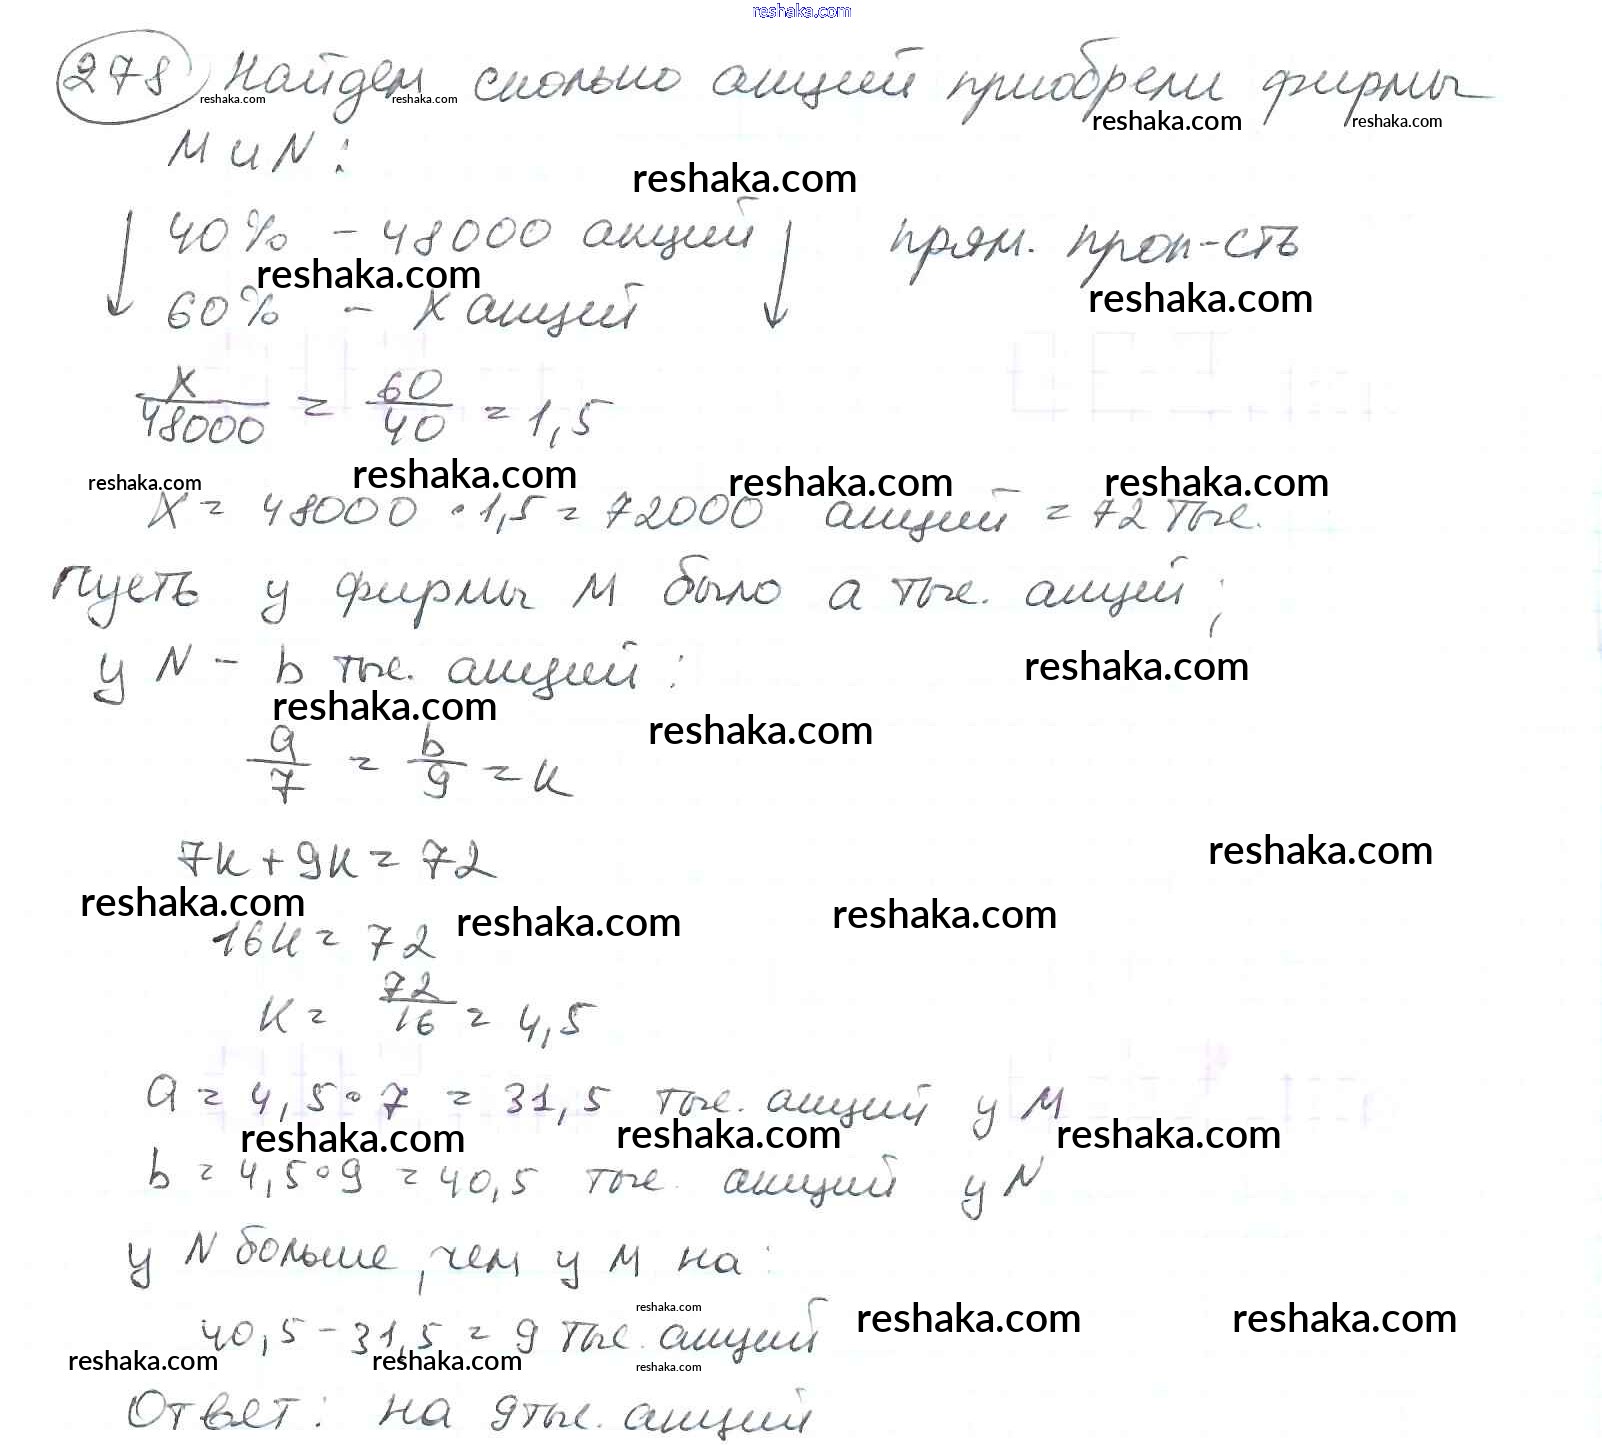 reshaka.com
278 Найдем сколько акций приобрели фирмы
reshaka.com reshaka.com reshaka.com reshaka.com
М и N:
reshaka.com
40% - 48000 акций прям. проп-сть
reshaka.com reshaka.com
60% - x акций
x/48000 = 60/40 = 1,5
reshaka.com reshaka.com reshaka.com reshaka.com
X = 48000 · 1,5 = 72000 акций = 72 тыс.
Пусть у фирмы М было a тыс. акций,
у N - b тыс. акций:
reshaka.com
reshaka.com reshaka.com
a/7 = b/9 = k
7k + 9k = 72
reshaka.com
reshaka.com reshaka.com reshaka.com
16k = 72
k = 72/16 = 4,5
a = 4,5 · 7 = 31,5 тыс. акций у М
reshaka.com reshaka.com reshaka.com
b = 4,5 · 9 = 40,5 тыс. акций у N
у N больше, чем у М на:
reshaka.com reshaka.com reshaka.com
40,5 - 31,5 = 9 тыс. акций
reshaka.com reshaka.com reshaka.com
Ответ: на 9 тыс. акций